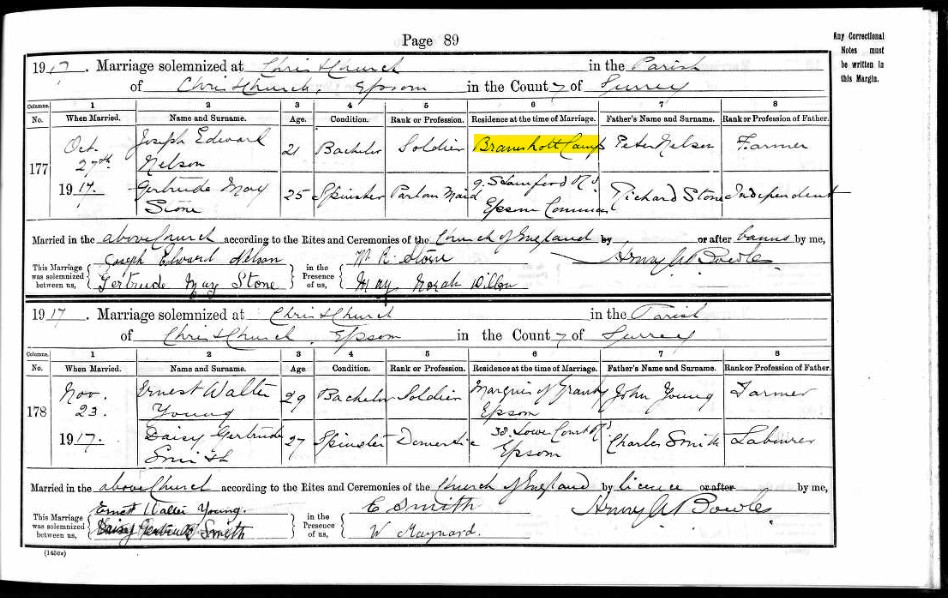 Page 89
Any Correctional
Notes must
be written in
this Margin.
1917. Marriage solemnized at Christ Church in the Parish
of Christ Church, Epsom in the County of Surrey
Columns. 1 2 3 4 5 6 7 8
No. When Married. Name and Surname. Age. Condition. Rank or Profession. Residence at the time of Marriage. Father's Name and Surname. Rank or Profession of Father.
177
Oct. 27th 1917.
Joseph Edward Nelson 21 Bachelor Soldier Bramshott Camp Peter Nelson Farmer
Gertrude May Stone 25 Spinster Parlour Maid 9. Stamford Rd. Epsom Common Richard Stone Independent
Married in the above Church according to the Rites and Ceremonies of the Church of England by or after banns by me,
This Marriage was solemnized between us,
Joseph Edward Nelson
Gertrude May Stone
in the Presence of us,
R. Stone
May Norah
Henry A Bowles
1917. Marriage solemnized at Christ Church in the Parish
of Christ Church, Epsom in the County of Surrey
Columns. 1 2 3 4 5 6 7 8
No. When Married. Name and Surname. Age. Condition. Rank or Profession. Residence at the time of Marriage. Father's Name and Surname. Rank or Profession of Father.
178
Nov. 23. 1917.
Ernest Walter Young 29 Bachelor Soldier Marquis of Granby Epsom John Young Farmer
Daisy Gertrude Smith 27 Spinster Domestic 38. Lower Court Rd Epsom Charles Smith Labourer
Married in the above Church according to the Rites and Ceremonies of the Church of England by licence or after by me,
This Marriage was solemnized between us,
Ernest Walter Young.
Daisy Gertrude Smith
in the Presence of us,
E Smith
W Maynard.
Henry A Bowles